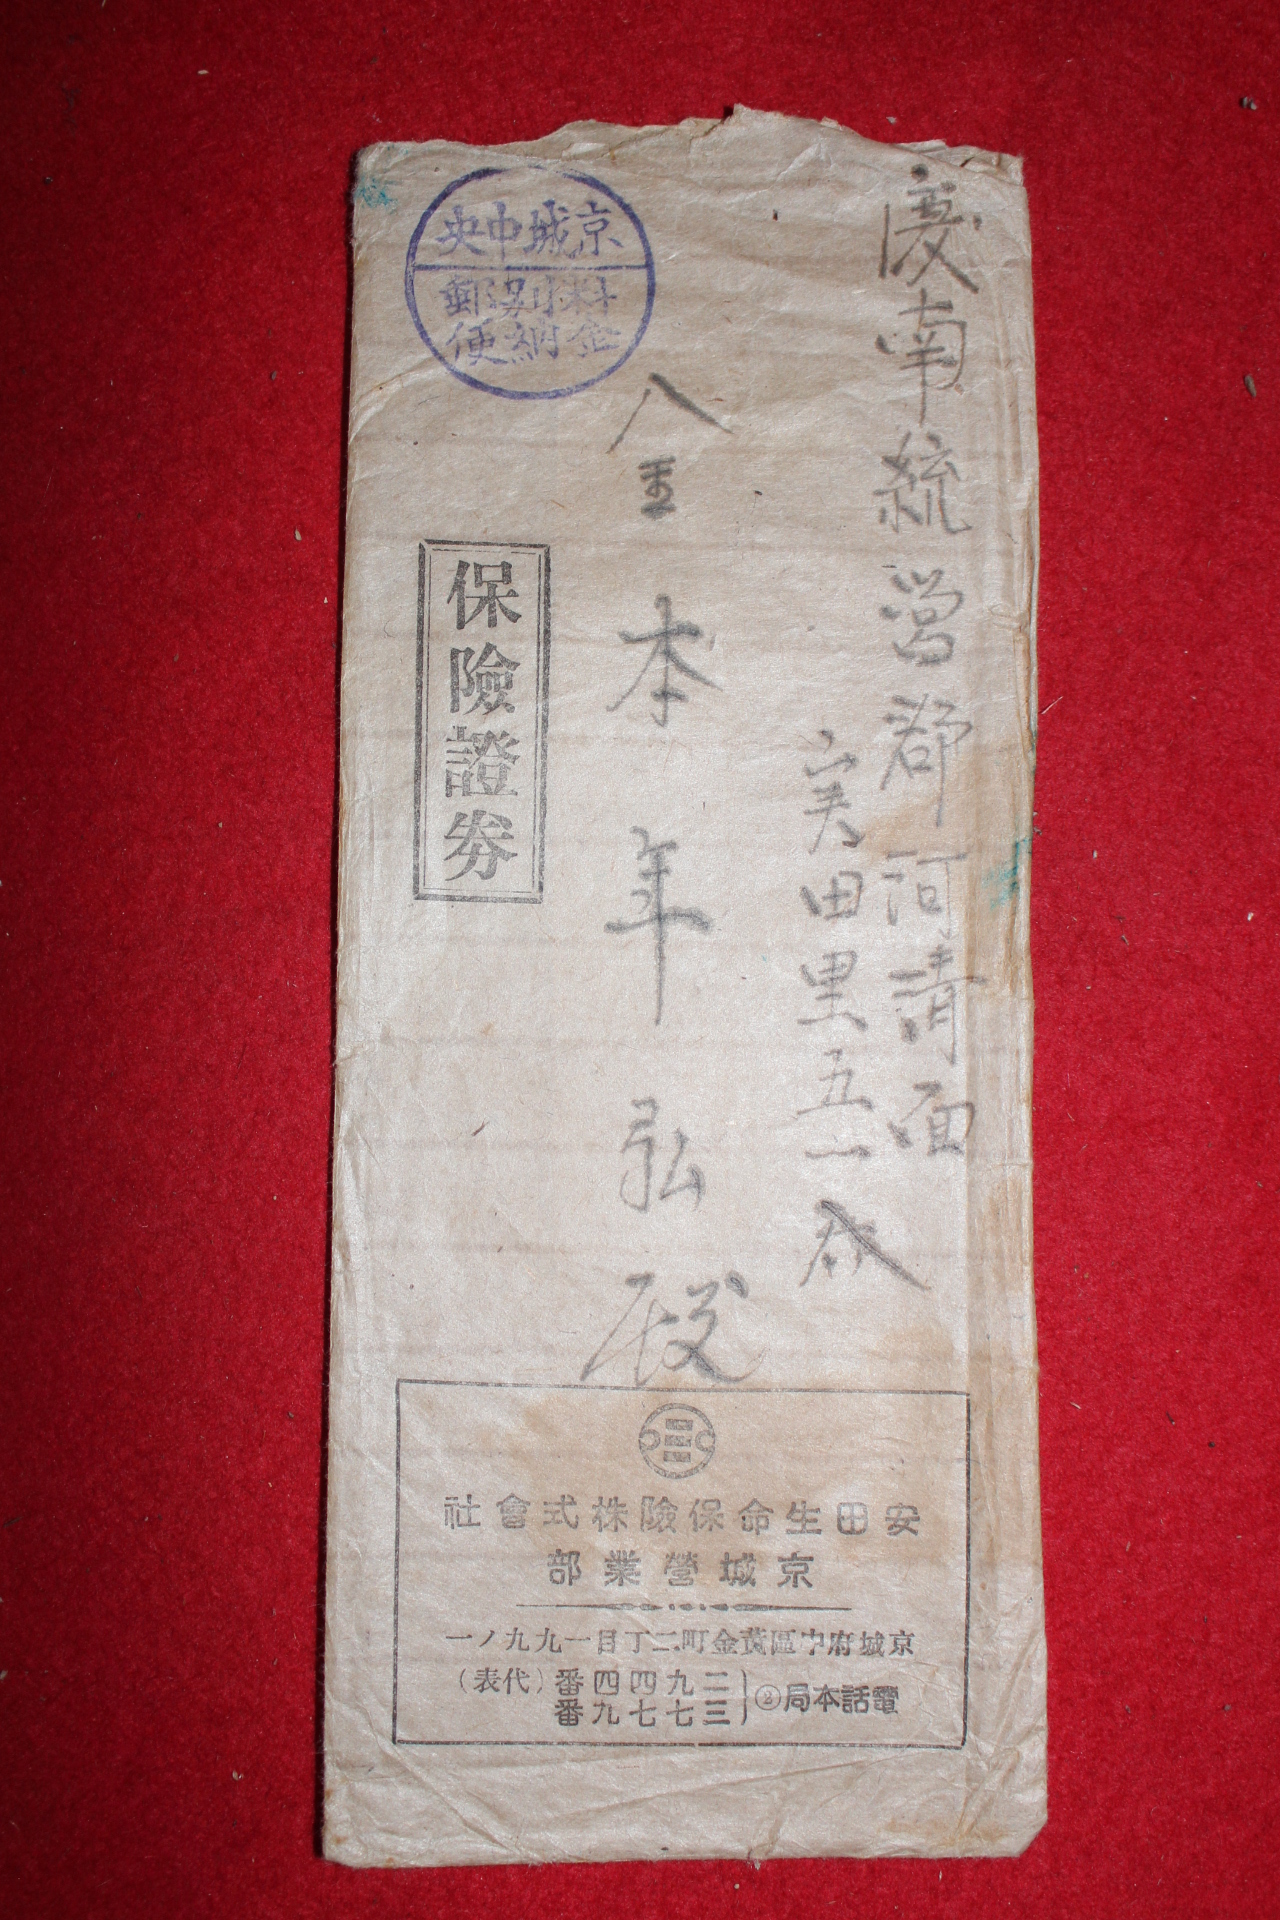 慶南統営郡河清面
実田里五一
金本年弘殿
京城中央
料金別納郵便
保險證券
安田生命保險株式會社
京城營業部
京城府中區黃金町二丁目一九九ノ一
電話本局②
二九四四番(代表)
三七七九番